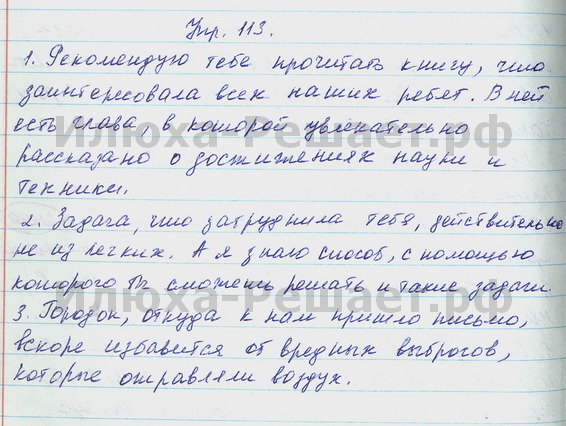 Упр. 113.
1. Рекомендую тебе прочитать книгу, что
заинтересовала всех наших ребят. В ней
есть глава, в которой увлекательно
рассказано о достижениях науки и
техники.
2. Задача, что затруднила тебя, действительно
не из легких. А я знаю способ, с помощью
которого ты сможешь решать и такие задачи.
3. Городок, откуда к нам пришло письмо,
вскоре избавится от вредных выбросов,
которые отравляли воздух.
Илюха-Решает.рф
Илюха-Решает.рф